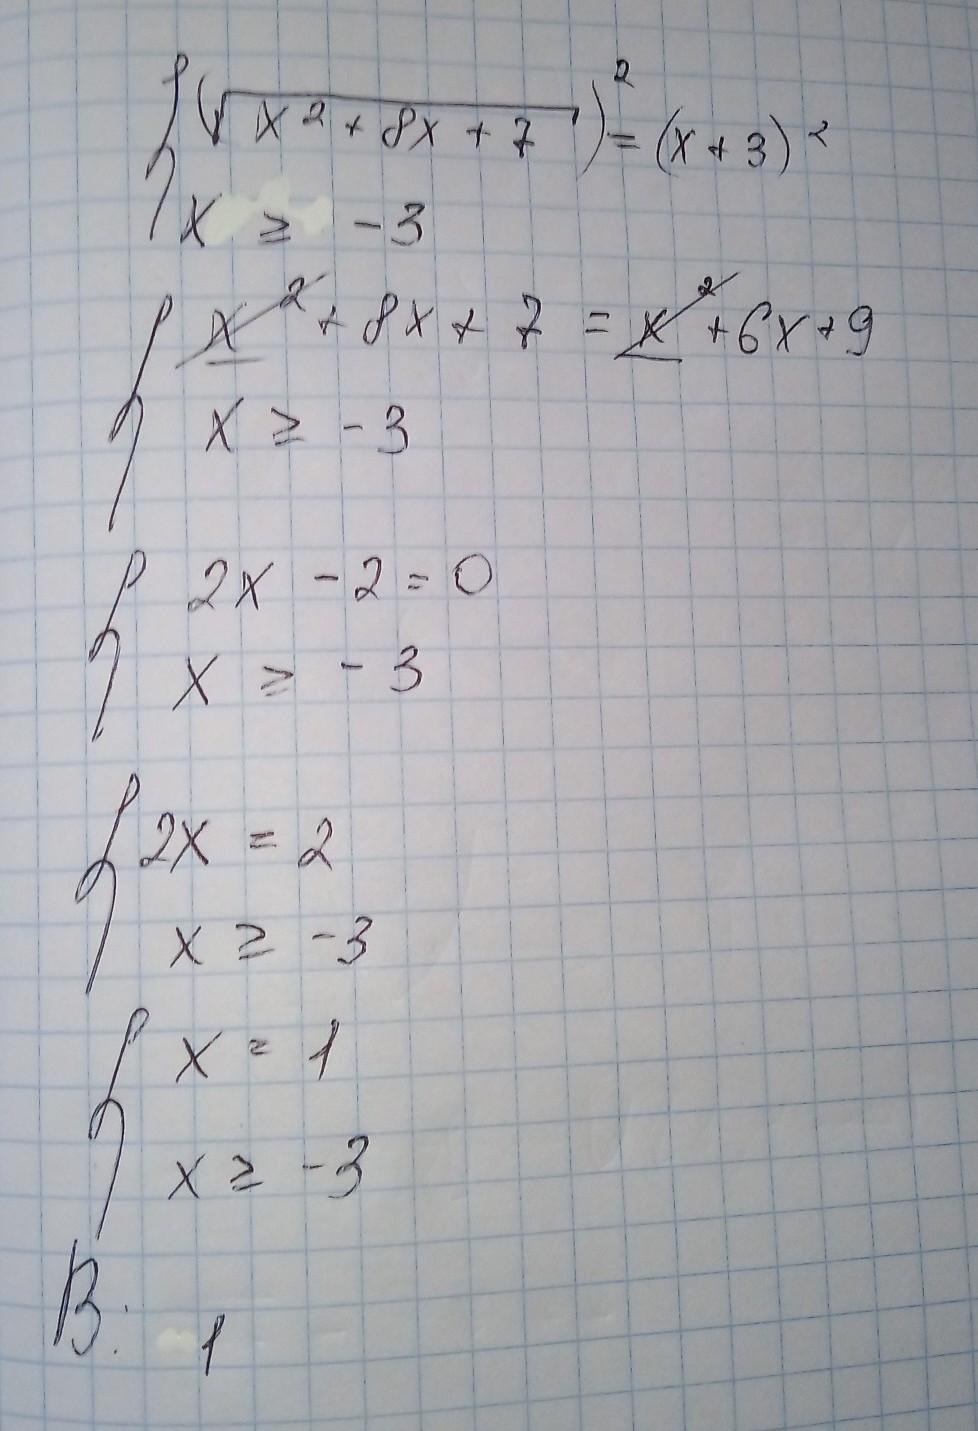 { (√x² + 8x + 7)² = (x + 3)²
x ≥ -3
{ x² + 8x + 7 = x² + 6x + 9
x ≥ -3
{ 2x - 2 = 0
x ≥ -3
{ 2x = 2
x ≥ -3
{ x = 1
x ≥ -3
В: 1